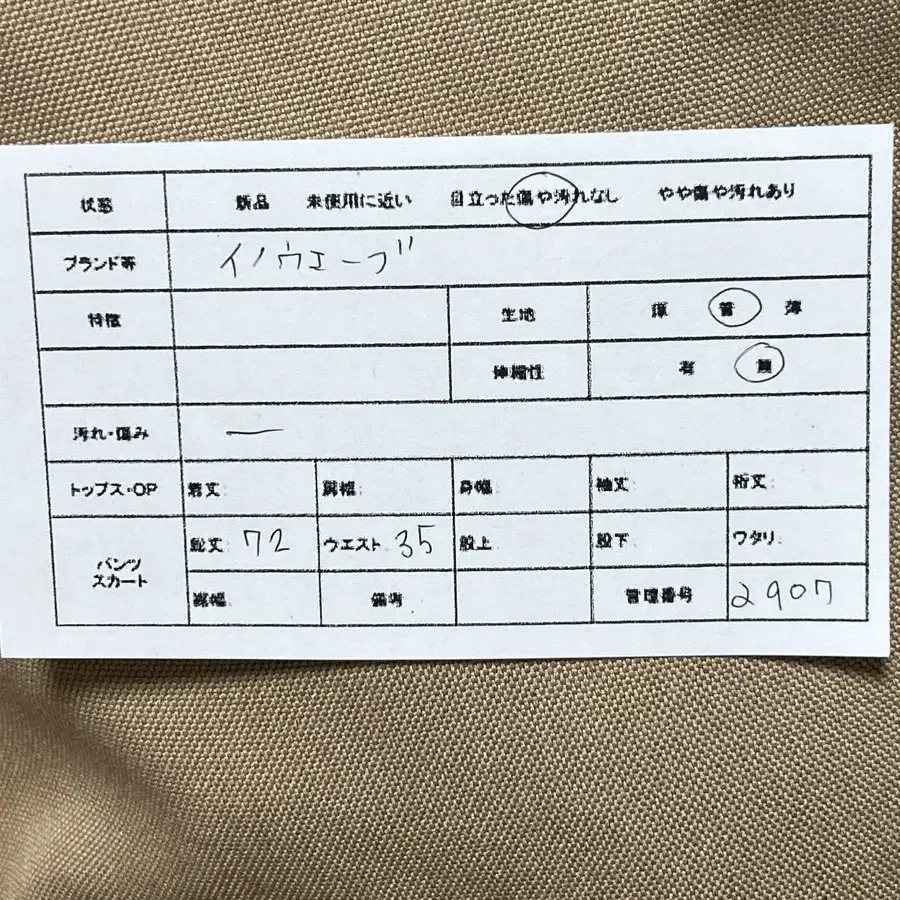 状態 新品 未使用に近い 目立った傷や汚れなし やや傷や汚れあり
ブランド等 イノウエーブ
特徴 生地 厚 普 薄
伸縮性 有 無
汚れ・傷み ー
トップス・OP 着丈: 肩幅: 身幅: 袖丈: 裄丈:
パンツ スカート 総丈: 72 ウエスト: 35 股上: 股下: ワタリ:
裾幅: 備考 管理番号 2907